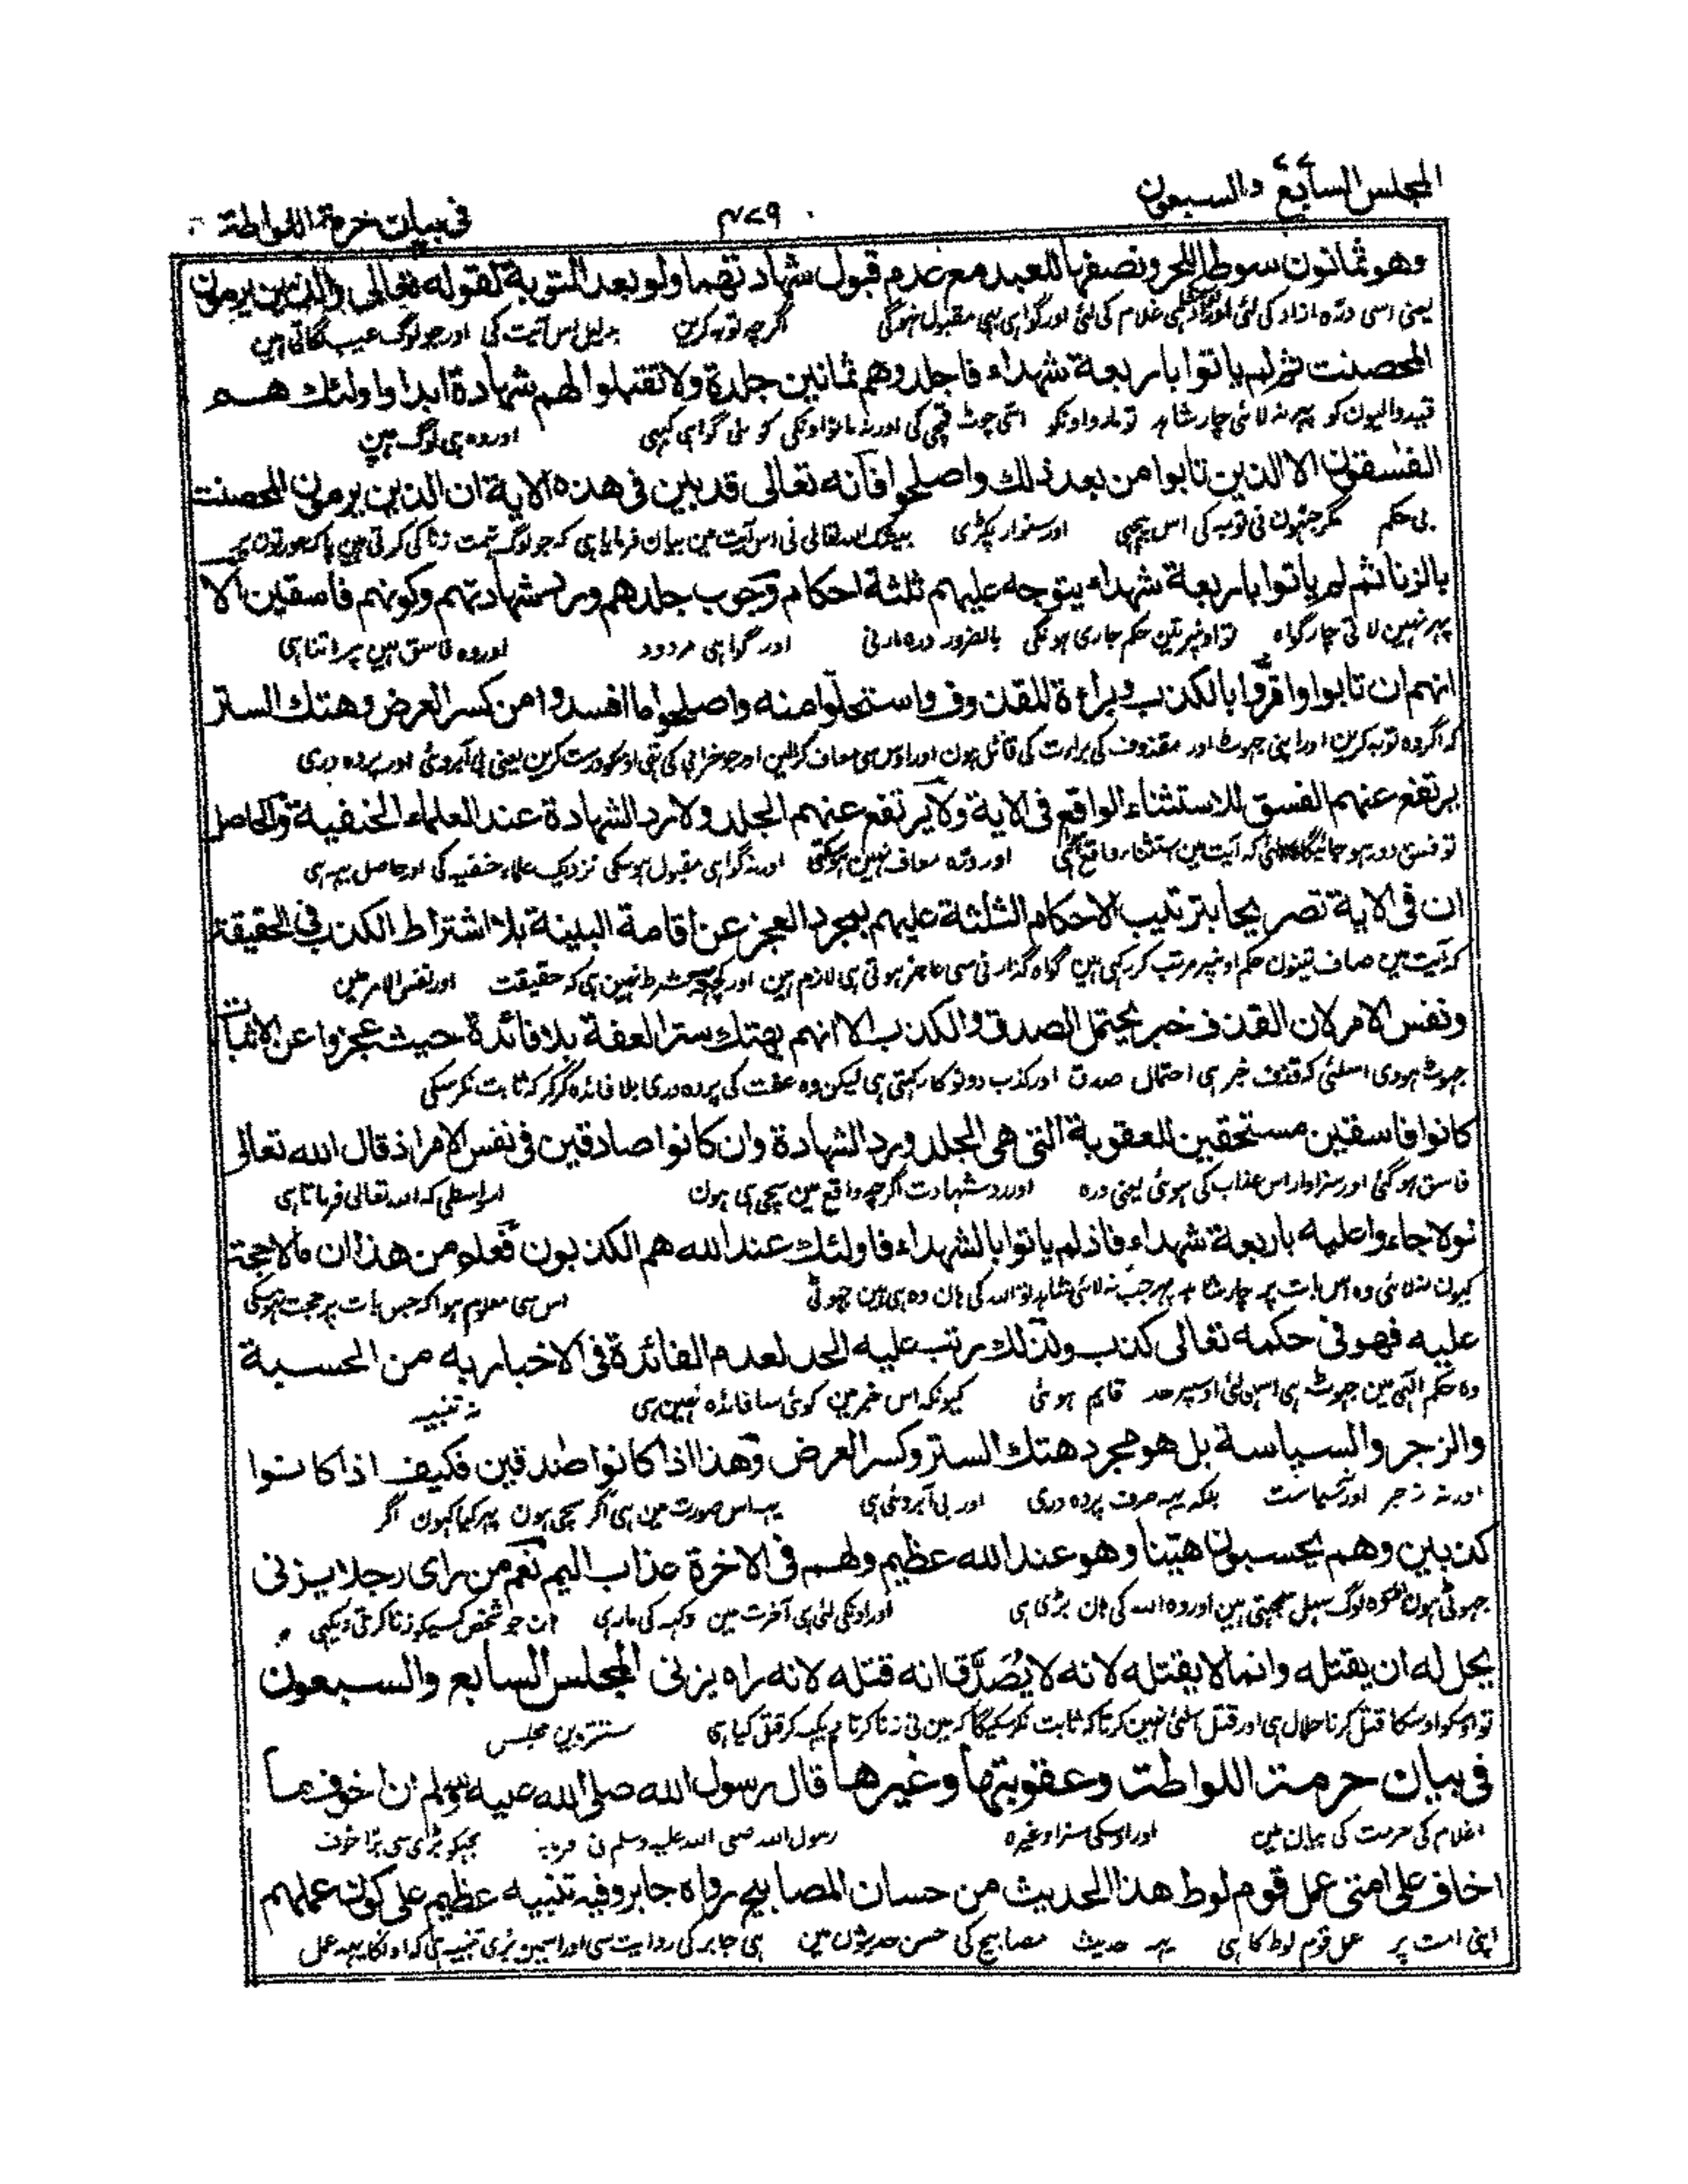 المجلس السابع والسبعون
۴۷۹
فى بيان حرمة اللواطة
وهو ثمانون سوطا للحر ونصفها للعبد مع عدم قبول شهادتهما ولو بعد التوبة لقوله تعالى والذين يرمون
یعنی اسی درہ ازاد کی لئی اور غلام کی لئی اور گواہی بہی مقبول نہوگی اگرچہ توبہ کرین بدلیل اس آیت کی اور جو لوگ عیب لگاتی ہین
المحصنت ثم لم ياتوا باربعة شهداء فاجلدوهم ثمانين جلدة ولا تقبلوا لهم شهادة ابدا واولئك هم
قید والیون کو پہر نہ لائی چار شاہد تو مارو اونکو اسّی چوٹ قمچی کی اور نہ مانو اونکی کوئی گواہی کبہی اور وہ ہی لوگ ہین
الفسقون الا الذين تابوا من بعد ذلك واصلحوا فانه تعالى قد بين فى هذه الاية ان الذين يرمون المحصنت
بی حکم مگر جنہون نی توبہ کی اس پیچہی اور سنوار پکڑی بیشک اللہ تعالی نی اس آیت مین بیان فرمایا ہی کہ جو لوگ تہمت زنا کی کرتی ہین پاک عورتون پر
بالزنا ثم لم ياتوا باربعة شهداء يتوجه عليهم ثلثة احكام وجوب جلدهم ورد شهادتهم وكونهم فاسقين الا
پہر نہین لاتی چار گواہ تو اونپر تین حکم جاری ہونگی بالضرور درہ مارنی اور گواہی مردود اور وہ فاسق ہین پر اتنا ہی
انهم ان تابوا واقروا بالكذب وبراءة للمقذوف واستحلوا منه واصلحوا ما افسدوا من كسر العرض وهتك الستر
کہ اگر وہ توبہ کرین اور اپنی جہوٹ اور مقذوف کی براءت کی قائل ہون اور اوس سی معاف کرالین اور جو خرابی کی تہی اوسکو درست کرین یعنی بی آبروئی اور پردہ دری
يرتفع عنهم الفسق للاستثناء الواقع فى الاية ولا يرتفع عنهم الجلد ولا رد الشهادة عند العلماء الحنفية والحاصل
تو فسق دور ہو جائیگا کہ آیت مین استثناء واقع ہی اور درہ معاف نہین ہوسکتی اور نہ گواہی مقبول ہوسکی نزدیک علماء حنفیہ کی اور حاصل یہہ ہی
ان فى الاية تصريحا بترتيب الاحكام الثلثة عليهم بمجرد العجز عن اقامة البينة بلا اشتراط الكذب فى الحقيقة
کہ آیت مین صاف تینون حکم اونپر مرتب کر رکہی ہین گواہ گذارنی سی عاجز ہوتی ہی لازم ہین اور کچہہ شرط نہین ہی کہ حقیقت اور نفس الامر مین
ونفس الامر لان القذف خبر يحتمل الصدق والكذب الا انهم بهتك ستر العفة بلا فائدة حيث عجزوا عن الاثبات
جہوٹ ہووی اسلئی کہ قذف خبر ہی احتمال صدق اور کذب دونو کا رکہتی ہی لیکن وہ عفت کی پردہ دری بلا فائدہ کر کر کہ ثابت نکر سکی
كانوا فاسقين مستحقين للعقوبة التى هى الجلد ورد الشهادة وان كانوا صادقين فى نفس الامر اذ قال الله تعالى
فاسق ہو گئی اور سزاوار اس عذاب کی ہوئی یعنی درہ اور رد شہادت اگرچہ واقع مین سچی ہی ہون اسواسطی کہ اللہ تعالی فرماتا ہی
لولا جاءوا عليه باربعة شهداء فاذ لم ياتوا بالشهداء فاولئك عند الله هم الكذبون فعلم من هذا ان ما لا حجة
کیون نہ لائی وہ اس بات پر چار شاہد پہر جب نہ لائی شاہد تو اللہ کی ہان وہ ہی ہین جہوٹی اس سی معلوم ہوا کہ جس بات پر حجت نہوسکی
عليه فهو فى حكمه تعالى كذب ولذلك رتب عليه الحد لعدم الفائدة فى الاخبار به من الحسبة
وہ حکم الہی مین جہوٹ ہی اسی لئی اوسپر حد قایم ہوئی کیونکہ اس خبر مین کوئی سا فائدہ نہین ہی نہ تنبیہ
والزجر والسياسة بل هو مجرد هتك الستر وكسر العرض وهذا اذا كانوا صدقين فكيف اذا كانوا
اور نہ زجر اور سیاست بلکہ یہہ صرف پردہ دری اور بی آبروئی ہی یہہ اس صورت مین ہی اگر سچی ہون پہر کیا کہون اگر
كذبين وهم يحسبونه هينا وهو عند الله عظيم ولهم فى الاخرة عذاب اليم نعم من راى رجلا يزنى
جہوٹی ہون وہ لوگ سہل سمجہتی ہین اور وہ اللہ کی ہان بڑی ہی اور اونکی لئی ہی آخرت مین دکہہ کی مار ہی ہان جو شخص کسیکو زنا کرتی دیکہی
يحل له ان يقتله وانما لا يقتله لانه لا يُصَدَّق انه قتله لانه راه يزنى المجلس السابع والسبعون
تو اوسکو اوسکا قتل کرنا حلال ہی اور قتل اسلئی نہین کرتا کہ ثابت نکر سکیگا کہ مین نی زنا کرتا دیکہہ کر قتل کیا ہی ستترہوین مجلس
فى بيان حرمة اللواطت وعقوبتها وغيرها قال رسول الله صلى الله عليه وسلم ان اخوف ما
اغلام کی حرمت کی بیان مین اور اوسکی سزا وغیرہ رسول اللہ صلی اللہ علیہ وسلم نی فرمایا مجہکو بڑی سی بڑا خوف
اخاف على امتى عمل قوم لوط هذا الحديث من حسان المصابيح رواه جابر وفيه تنبيه عظيم على كونه عملهم
اپنی امت پر عمل قوم لوط کا ہی یہہ حدیث مصابیح کی حسن حدیثون مین ہی جابر کی روایت سی اور اسمین بڑی تنبیہ ہی کہ اونکا یہہ عمل